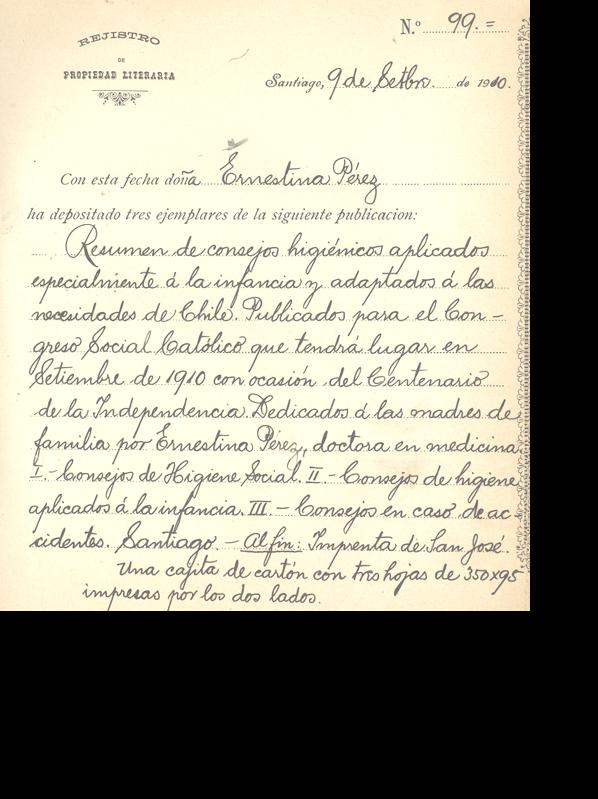 N.º 99.=
REJISTRO
DE
PROPIEDAD LITERARIA
Santiago, 9 de Setbre. de 1910.
Con esta fecha doña Ernestina Pérez
ha depositado tres ejemplares de la siguiente publicacion:
Resumen de consejos higiénicos aplicados
especialmente á la infancia y adaptados á las
necesidades de Chile. Publicados para el Con-
greso Social Católico que tendrá lugar en
Setiembre de 1910 con ocasión del Centenario
de la Independencia. Dedicados á las madres de
familia por Ernestina Pérez, doctora en medicina.
I.- Consejos de Higiene Social. II - Consejos de higiene
aplicados á la infancia. III. - Consejos en caso de ac-
cidentes. Santiago. - Al fin: Imprenta de San José.
Una cajita de cartón con tres hojas de 350x95
impresas por los dos lados.